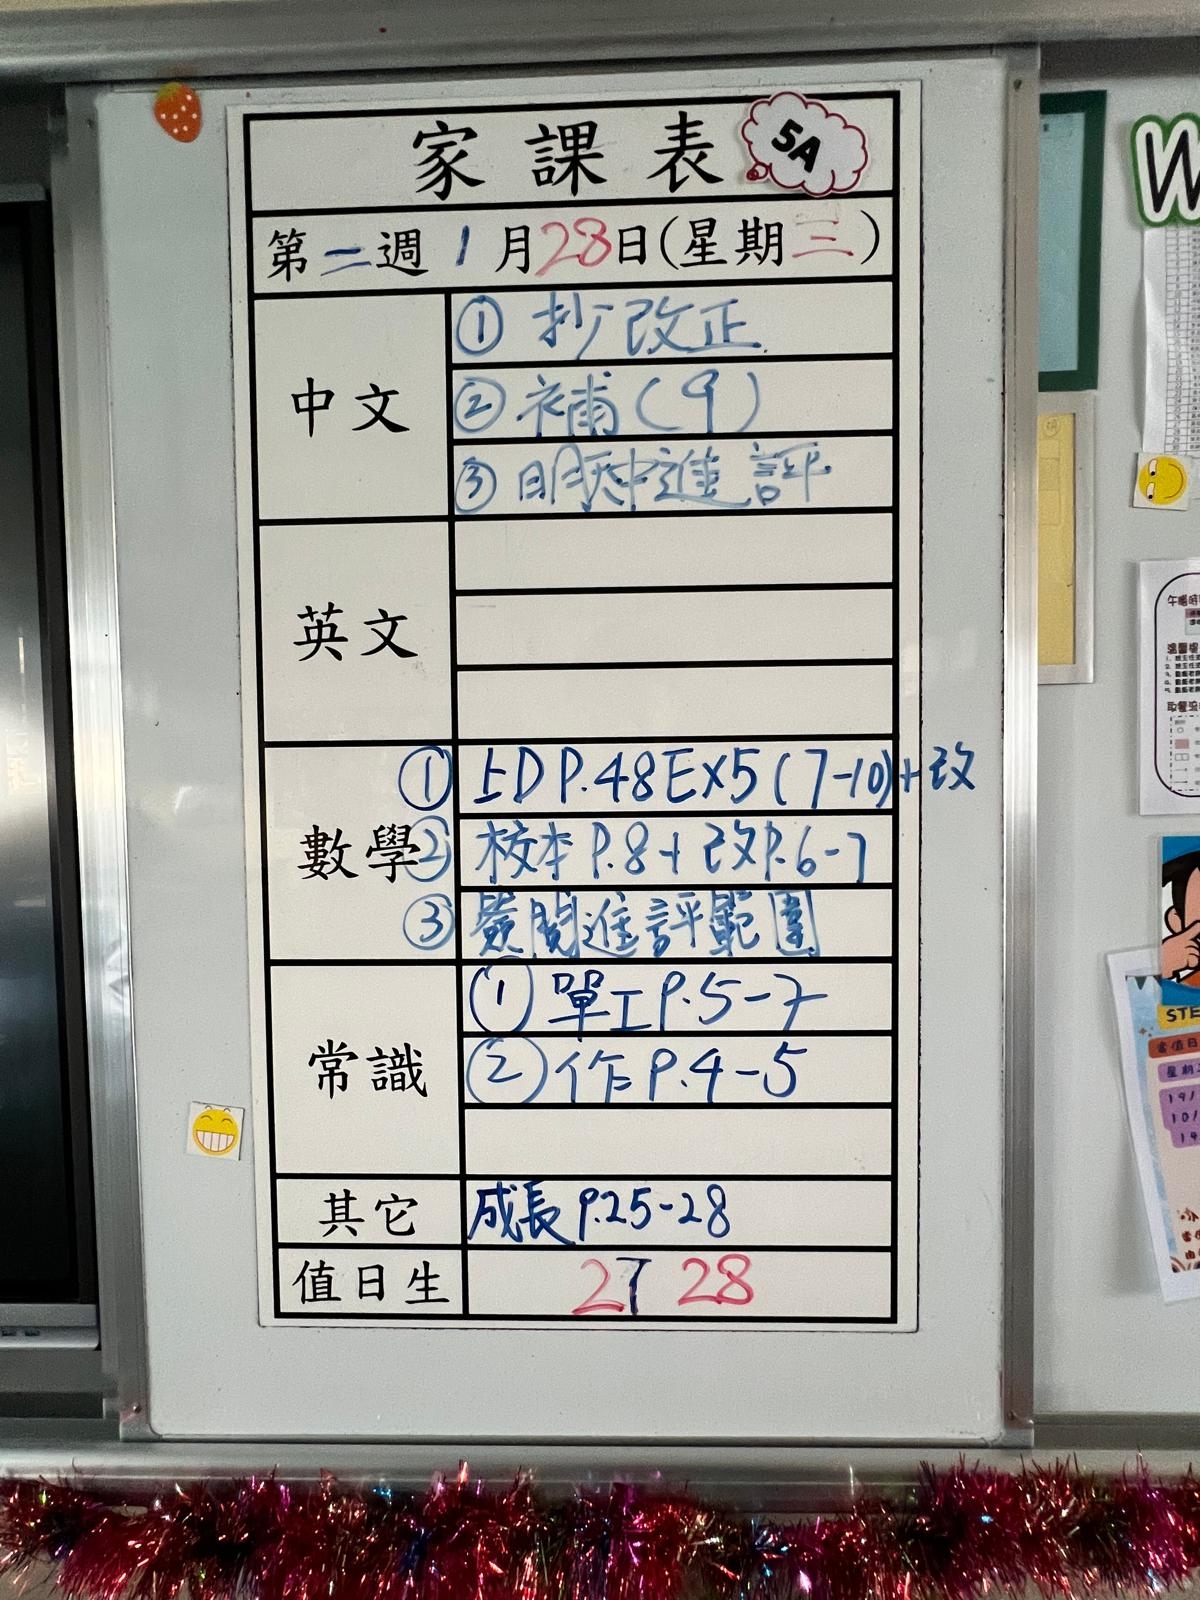 家課表 5A
第二週 1月28日(星期三)
中文
① 抄改正
② 補(9)
③ 明天中進評
英文
數學
① 上D P.48 Ex5(7-10)+改
② 校本 P.8+改P.6-7
③ 簽閱進評範圍
常識
① 單工P.5-7
② 作P.4-5
其它
成長 P.25-28
值日生
27 28
W
午膳時
溫馨提
取餐流
STE
當值日
星期
19/
10/